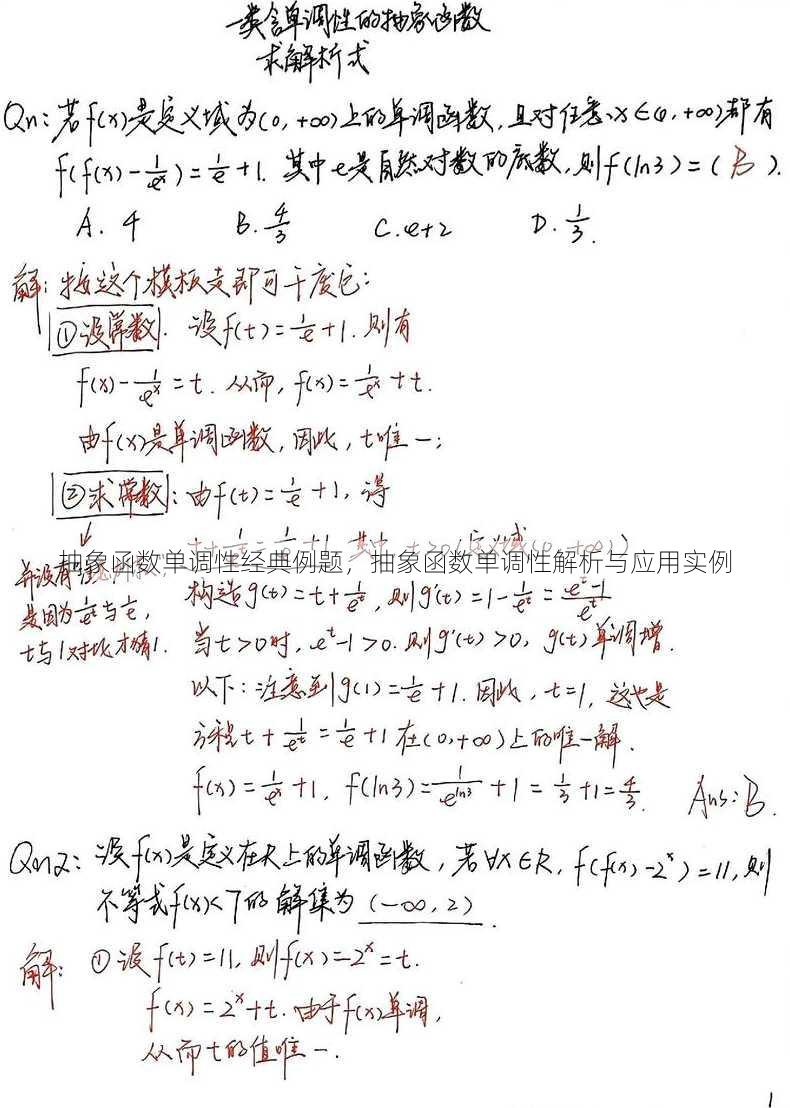 一类含单调性的抽象函数
求解析式
Qn1: 若f(x)是定义域为(0, +∞)上的单调函数, 且对任意x∈(0, +∞)都有
f(f(x) - 1/e^x) = 1/e + 1. 其中e是自然对数的底数, 则f(ln3) = ( B ).
A. 4 B. 4/3 C. e+2 D. 1/3.
解: 按这个模板走即可
①设常数. 设f(t) = 1/e + 1. 则有
f(x) - 1/e^x = t. 从而, f(x) = 1/e^x + t.
由f(x)是单调函数, 因此, t唯一;
②求常数: 由f(t) = 1/e + 1, 得
抽象函数单调性经典例题，抽象函数单调性解析与应用实例
并没有
是因为1/e^t与1/e,
t与1对比才猜1.
构造g(t) = t + 1/e^t, 则g'(t) = 1 - 1/e^t = (e^t - 1)/e^t
当t>0时, e^t - 1 > 0. 则g'(t) > 0, g(t)单调增.
以下: 注意到g(1) = 1/e + 1. 因此, t = 1, 这也是
方程t + 1/e^t = 1/e + 1 在(0, +∞)上的唯一解.
f(x) = 1/e^x + 1, f(ln3) = 1/e^ln3 + 1 = 1/3 + 1 = 4/3. Ans: B.
Qn2: 设f(x)是定义在R上的单调函数, 若∀x∈R, f(f(x) - 2^x) = 11, 则
不等式f(x) < 7的解集为 (-∞, 2) .
解: ①设f(t) = 11, 则f(x) - 2^x = t.
f(x) = 2^x + t. 由于f(x)单调,
从而t的值唯一.
1